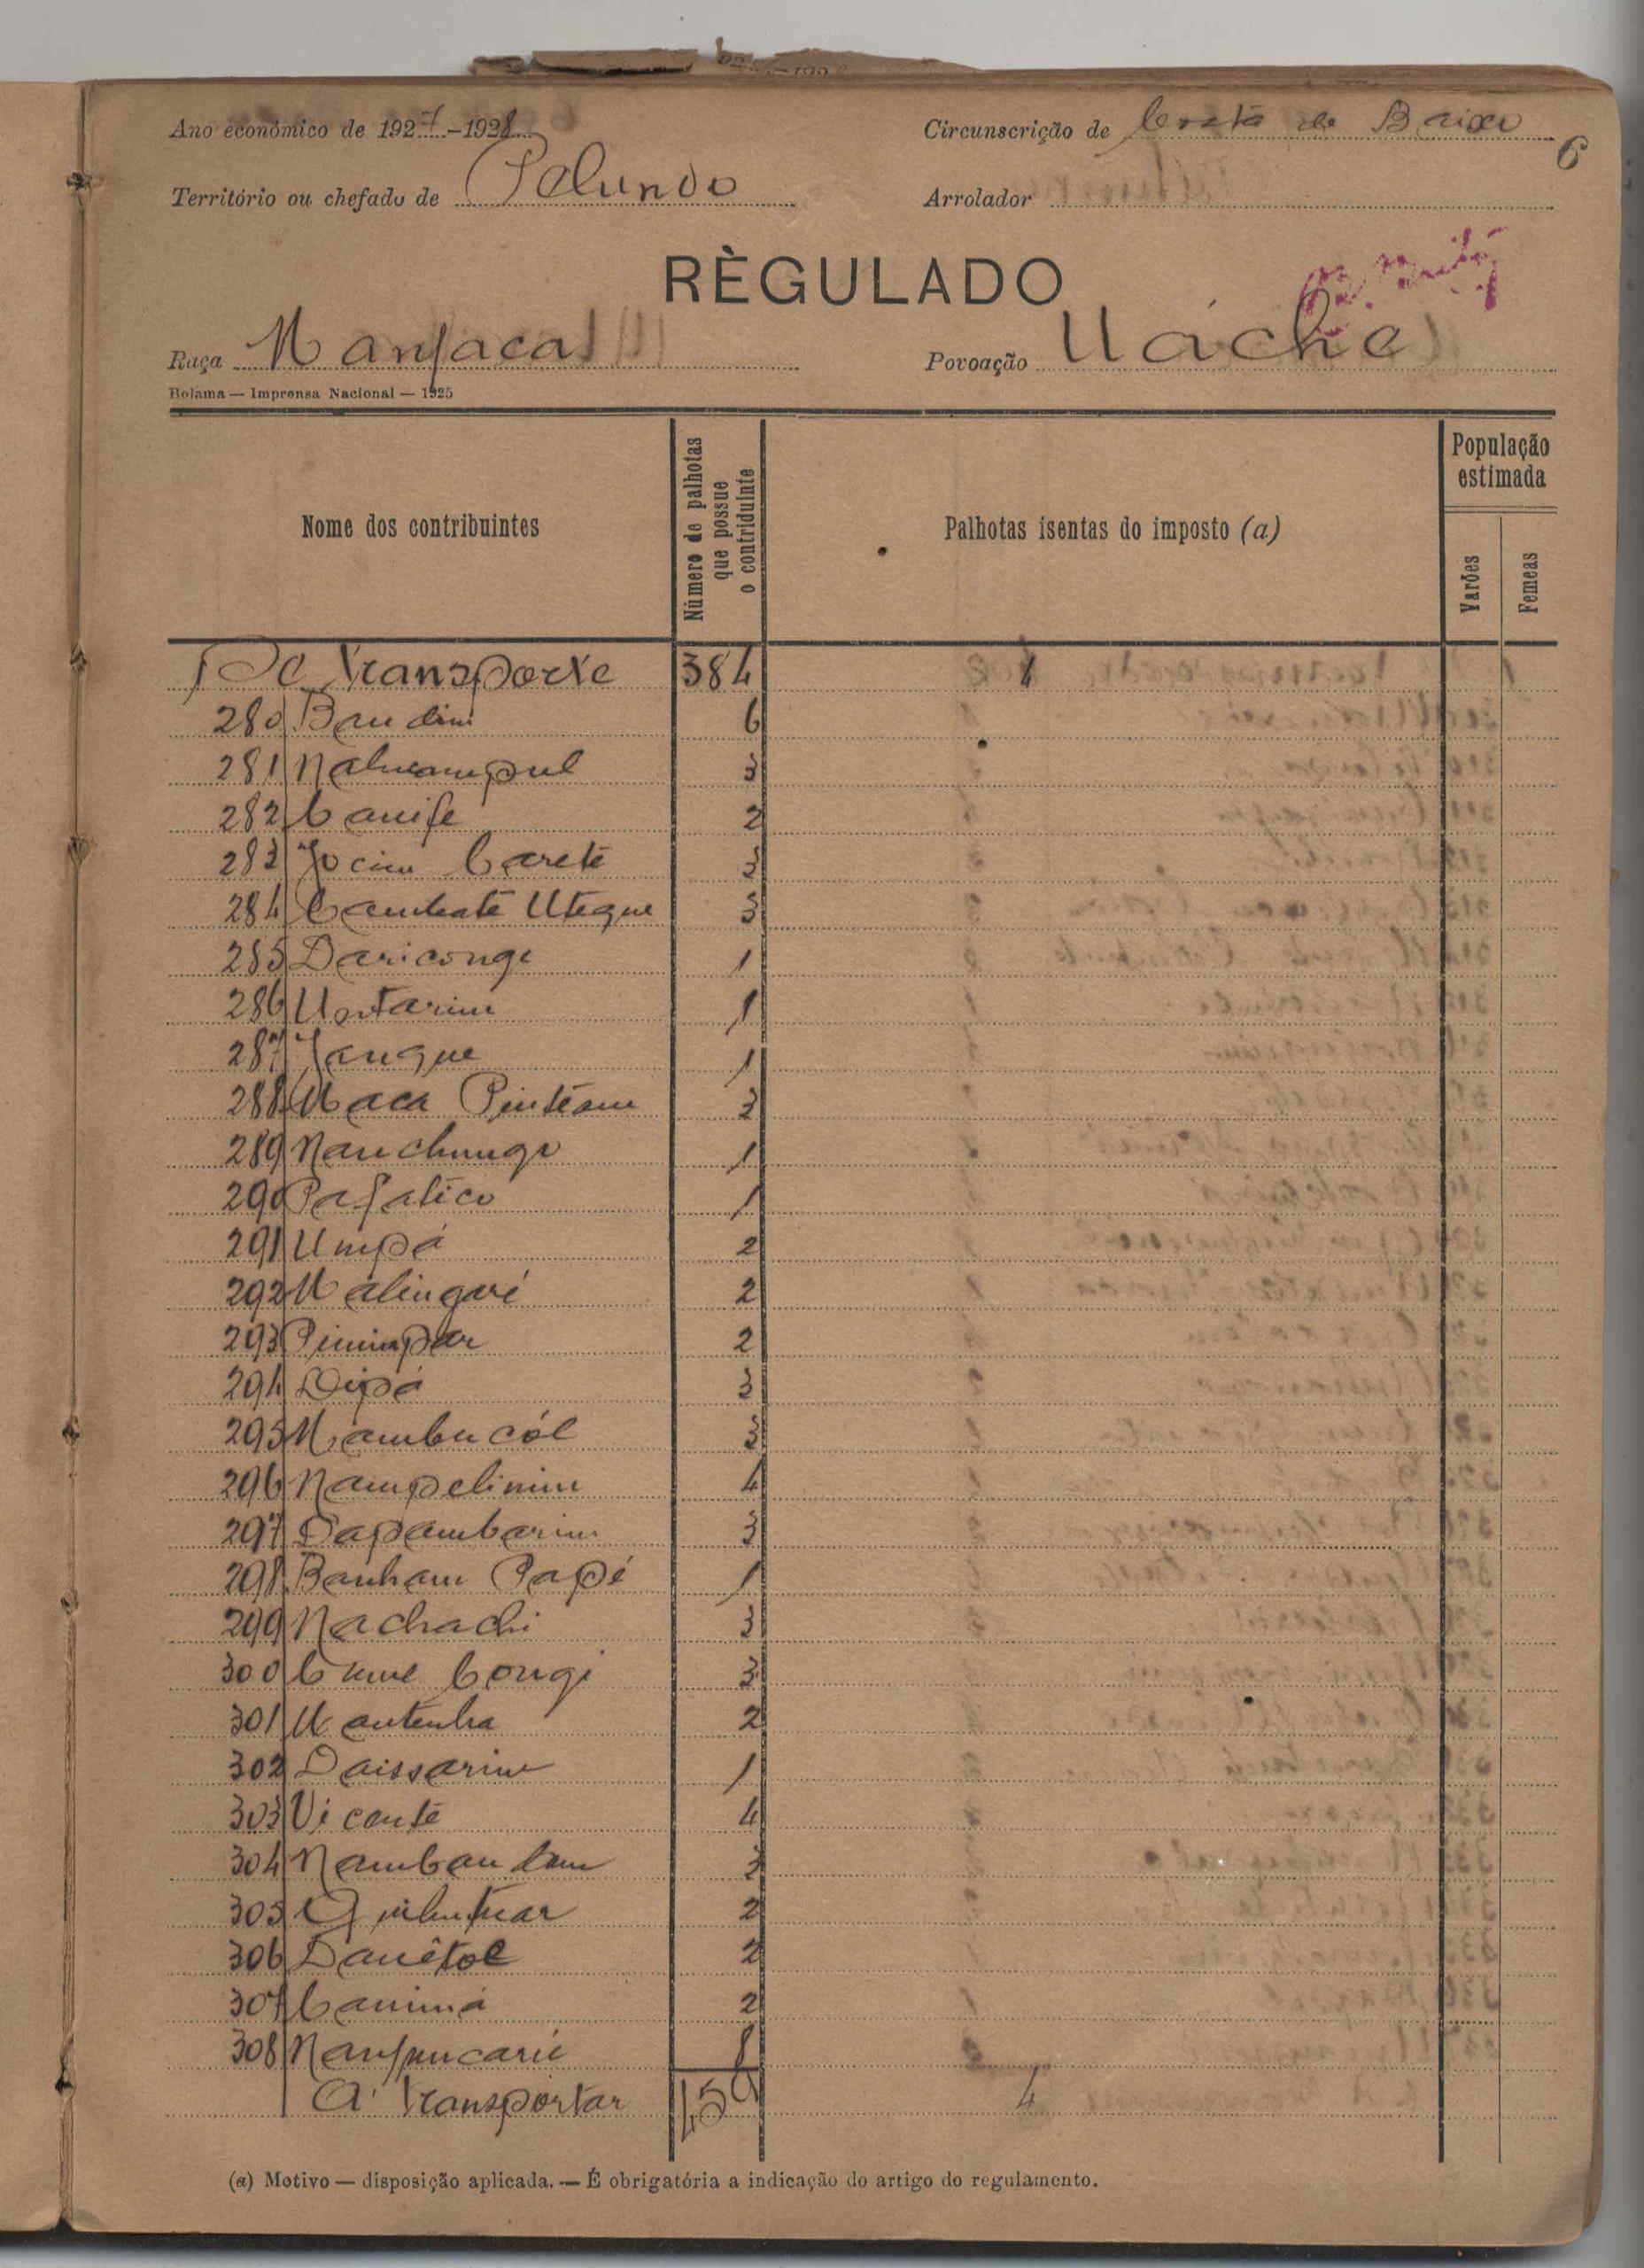 Ano económico de 1927-1928
Circunscrição de Costa de Baixo
6
Território ou chefado de Pelundo
Arrolador
RÈGULADO
Raça Manjaca
Povoação Uáche
Bolama — Imprensa Nacional — 1925
Nome dos contribuintes
Número de palhotas que possue o contriduinte
Palhotas isentas do imposto (a)
População estimada
Varões
Femeas
De transporte 384
280 Baudim 6
281 3
282 Canife 2
283 Careté 3
284 Uteque 3
285 Dariconge 1
286 1
287 Jangue 1
288 Maca 3
289 Nanchungo 1
290 Pafatico 1
291 Umpá 2
292 Malingaré 2
293 Pimimpar 2
294 Dipá 3
295 Mambucól 3
296 Nampelinim 4
297 Papambarim 3
298 Banham Papé 1
299 Nachachi 3
300 Congi 3
301 Mantenha 2
302 Daissarim 1
303 Vicenté 4
304 3
305 2
306 Danêtol 2
307 Canimá 2
308
A transportar 459 4
(a) Motivo — disposição aplicada. — É obrigatória a indicação do artigo do regulamento.